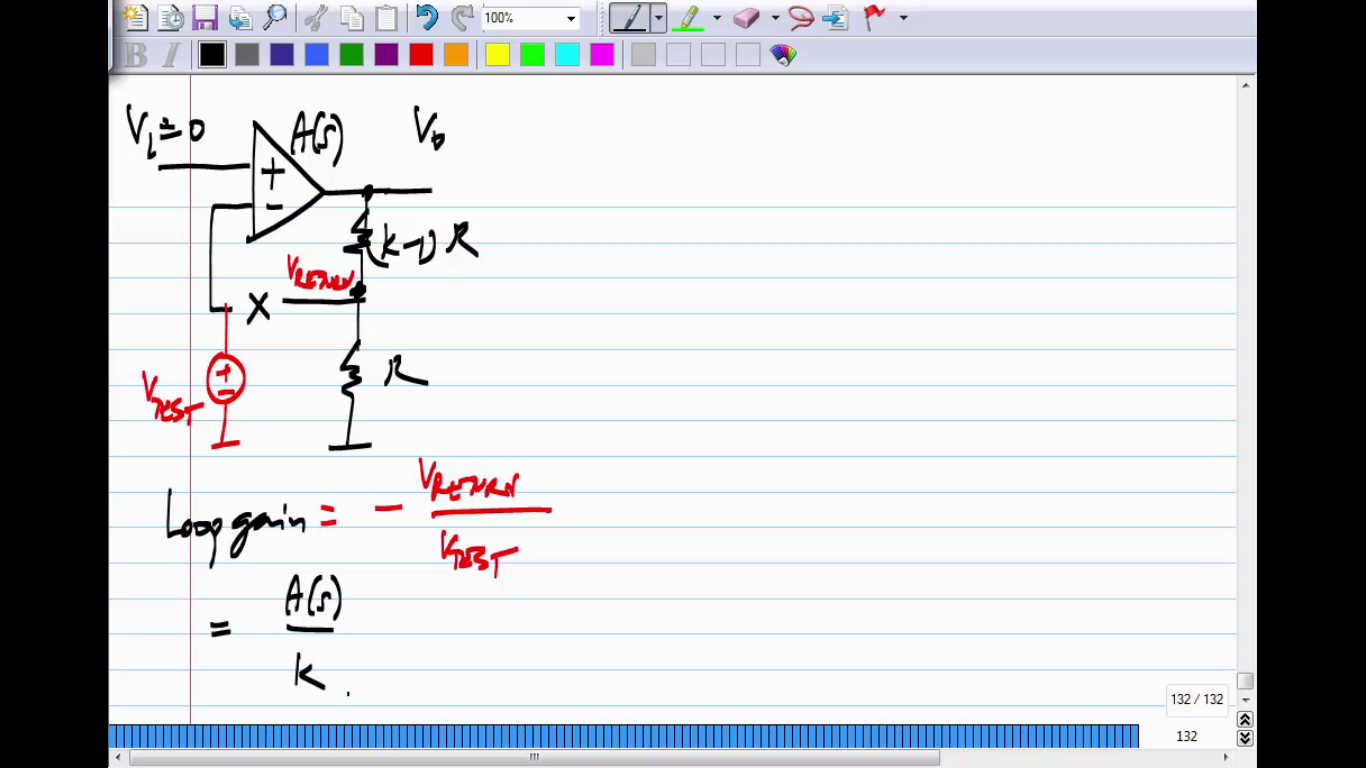 100%
B I
V_i = 0
A(s)
V_o
+
-
(k-1) R
V_RETURN
X
+
-
V_TEST
R
Loop gain = - V_RETURN
V_TEST
= A(s)
k
132 / 132
132